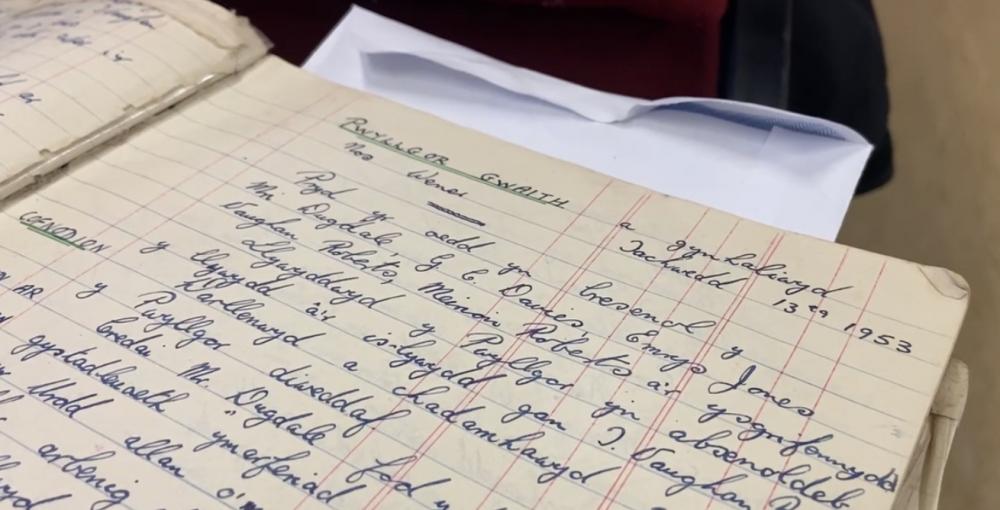 PWYLLGOR GWAITH a gynhaliwyd
Nos Wener Tachwedd 13eg 1953
Pryd yr oedd yn bresenol y
Mri Dugdale, G. C. Davies, Emrys Jones
Vaughan Roberts, Meirion Roberts a'r ysgrifennydd
Llywyddwyd y Pwyllgor yn absenoldeb
y llywydd a'r is-lywydd gan J. Vaughan
COFNODION Darllenwyd a chadarnhawyd
y Pwyllgor diweddaf
AR Credai Mr. Dugdale fod y
gystadleuaeth "ymarferiad
Urdd allan o'm
arbenig